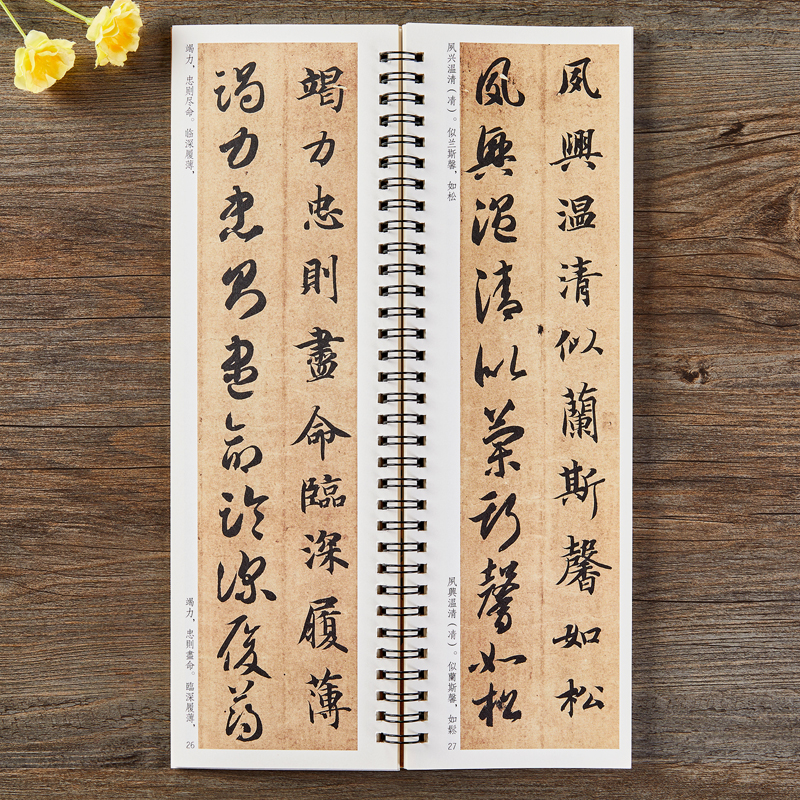 竭力忠則盡命臨深履薄
竭力忠則盡命臨深履薄
竭力，忠则尽命。临深履薄，
竭力，忠則盡命。臨深履薄，
26
夙興温清似蘭斯馨如松
夙興温清似蘭斯馨如松
夙兴温清（凊）。似兰斯馨，如松
夙興温清（凊）。似蘭斯馨，如鬆
27